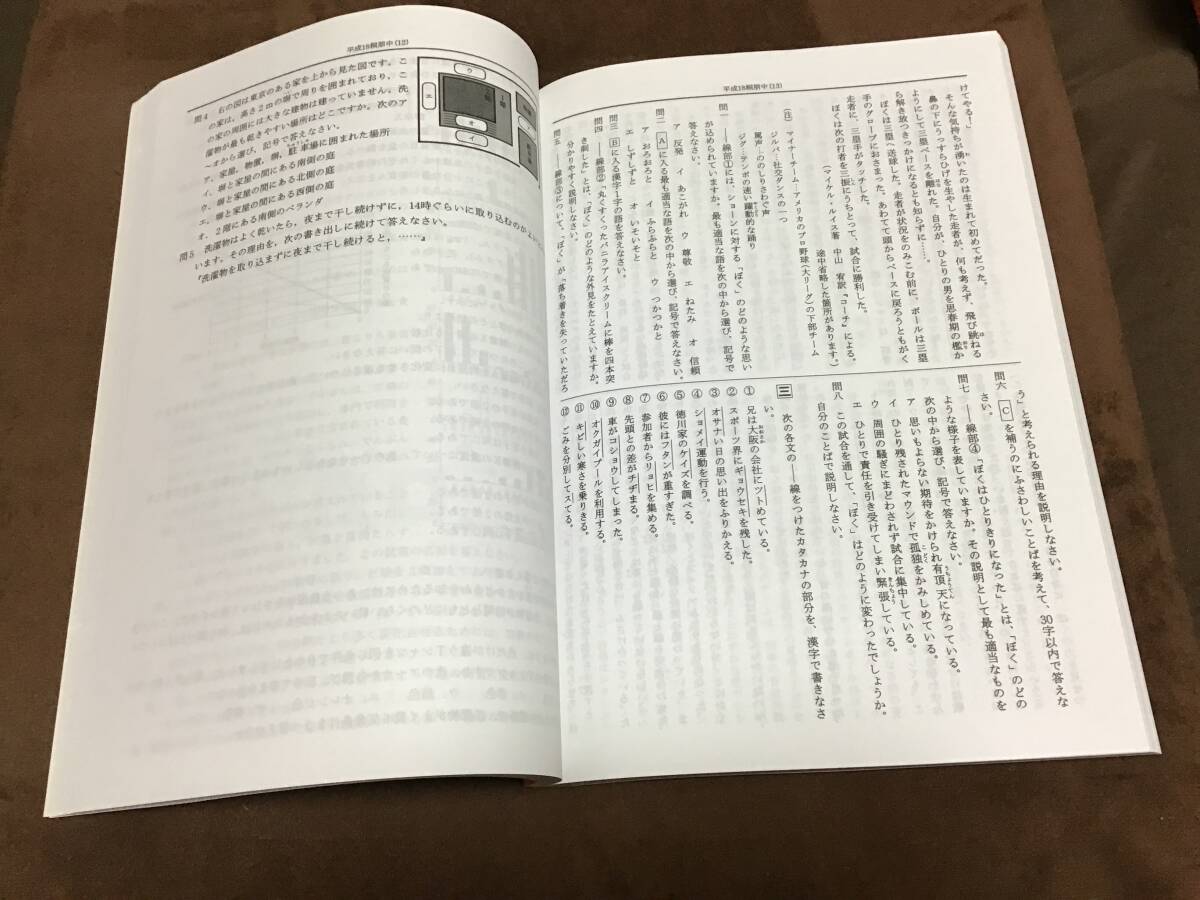 平成18桐朋中(12)
問4　右の図は東京のある家を上から見た図です。こ
の家は、高さ2mの塀で周りを囲まれており、こ
の家の周囲には大きな建物は建っていません。洗
濯物が最も乾きやすい場所はどこですか。次のア
～オから選び、記号で答えなさい。
ア、家屋、物置、塀、駐車場に囲まれた場所
イ、塀と家屋の間にある南側の庭
ウ、塀と家屋の間にある北側の庭
エ、塀と家屋の間にある西側の庭
オ、2階にある南側のベランダ
問5　洗濯物はよく乾いたら、夜まで干し続けずに，14時ぐらいに取り込むのが
います。その理由を、次の書き出しに続けて答えなさい。
『洗濯物を取り込まずに夜まで干し続けると，……』
ウ
エ
オ
イ
平成18桐朋中(13)
けてやる！」
そんな気持ちが湧いたのは生まれて初めてだった。
鼻の下にうっすらひげを生やした走者が、何も考えず、飛び跳ねる
ようにして三塁ベースを離れた。自分が、ひとりの男を思春期の檻か
ら解き放つきっかけになるとも知らずに……。
ぼくは三塁へ送球した。走者が状況をのみこむ前に、ボールは三塁
手のグローブにおさまった。あわてて頭からベースに戻ろうともがく
走者に、三塁手がタッチした。
ぼくは次の打者を三振にうちとって、試合に勝利した。
（マイケル・ルイス著　中山　宥訳『コーチ』による。
途中省略した箇所があります。）
（注）　マイナーチーム…アメリカのプロ野球（大リーグ）の下部チーム
罵声…ののしりさわぐ声
ジグ…テンポの速い躍動的な踊り
ジルバ…社交ダンスの一つ
問一　――線部①には、ショーンに対する「ぼく」のどのような思い
が込められていますか。最も適当な語を次の中から選び、記号で
答えなさい。
ア　反発　イ　あこがれ　ウ　尊敬　エ　ねたみ　オ　信頼
問二　Aに入る最も適当な語を次の中から選び、記号で答えなさい。
ア　おろおろと　イ　ふらふらと　ウ　つかつかと
エ　しずしずと　オ　いそいそと
問三　Bに入る漢字1字の語を答えなさい。
問四　――線部②「丸くすくったバニラアイスクリームに棒を四本突
き刺した」とは、「ぼく」のどのような外見をたとえていますか。
分かりやすく説明しなさい。
問五　――線部③について、「ぼく」が「落ち着きを失っていただろ
う」と考えられる理由を説明しなさい。
問六　Cを補うのにふさわしいことばを考えて、30字以内で答えな
さい。
問七　――線部④「ぼくはひとりきりになった」とは、「ぼく」のどの
ような様子を表していますか。その説明として最も適当なものを
次の中から選び、記号で答えなさい。
ア　思いもよらない期待をかけられ有頂天になっている。
イ　ひとり残されたマウンドで孤独をかみしめている。
ウ　周囲の騒ぎにまどわされず試合に集中している。
エ　ひとりで責任を引き受けてしまい緊張している。
問八　この試合を通して、「ぼく」はどのように変わったでしょうか。
自分のことばで説明しなさい。
三　次の各文の――線をつけたカタカナの部分を、漢字で書きなさ
い。
①　兄は大阪の会社にツトめている。
②　スポーツ界にギョウセキを残した。
③　オサナい日の思い出をふりかえる。
④　ショメイ運動を行う。
⑤　徳川家のケイズを調べる。
⑥　彼にはフタンが重すぎた。
⑦　参加者からリョヒを集める。
⑧　先頭との差がチヂまる。
⑨　車がコショウしてしまった。
⑩　オクガイプールを利用する。
⑪　キビしい寒さを乗りきる。
⑫　ごみを分別してステる。